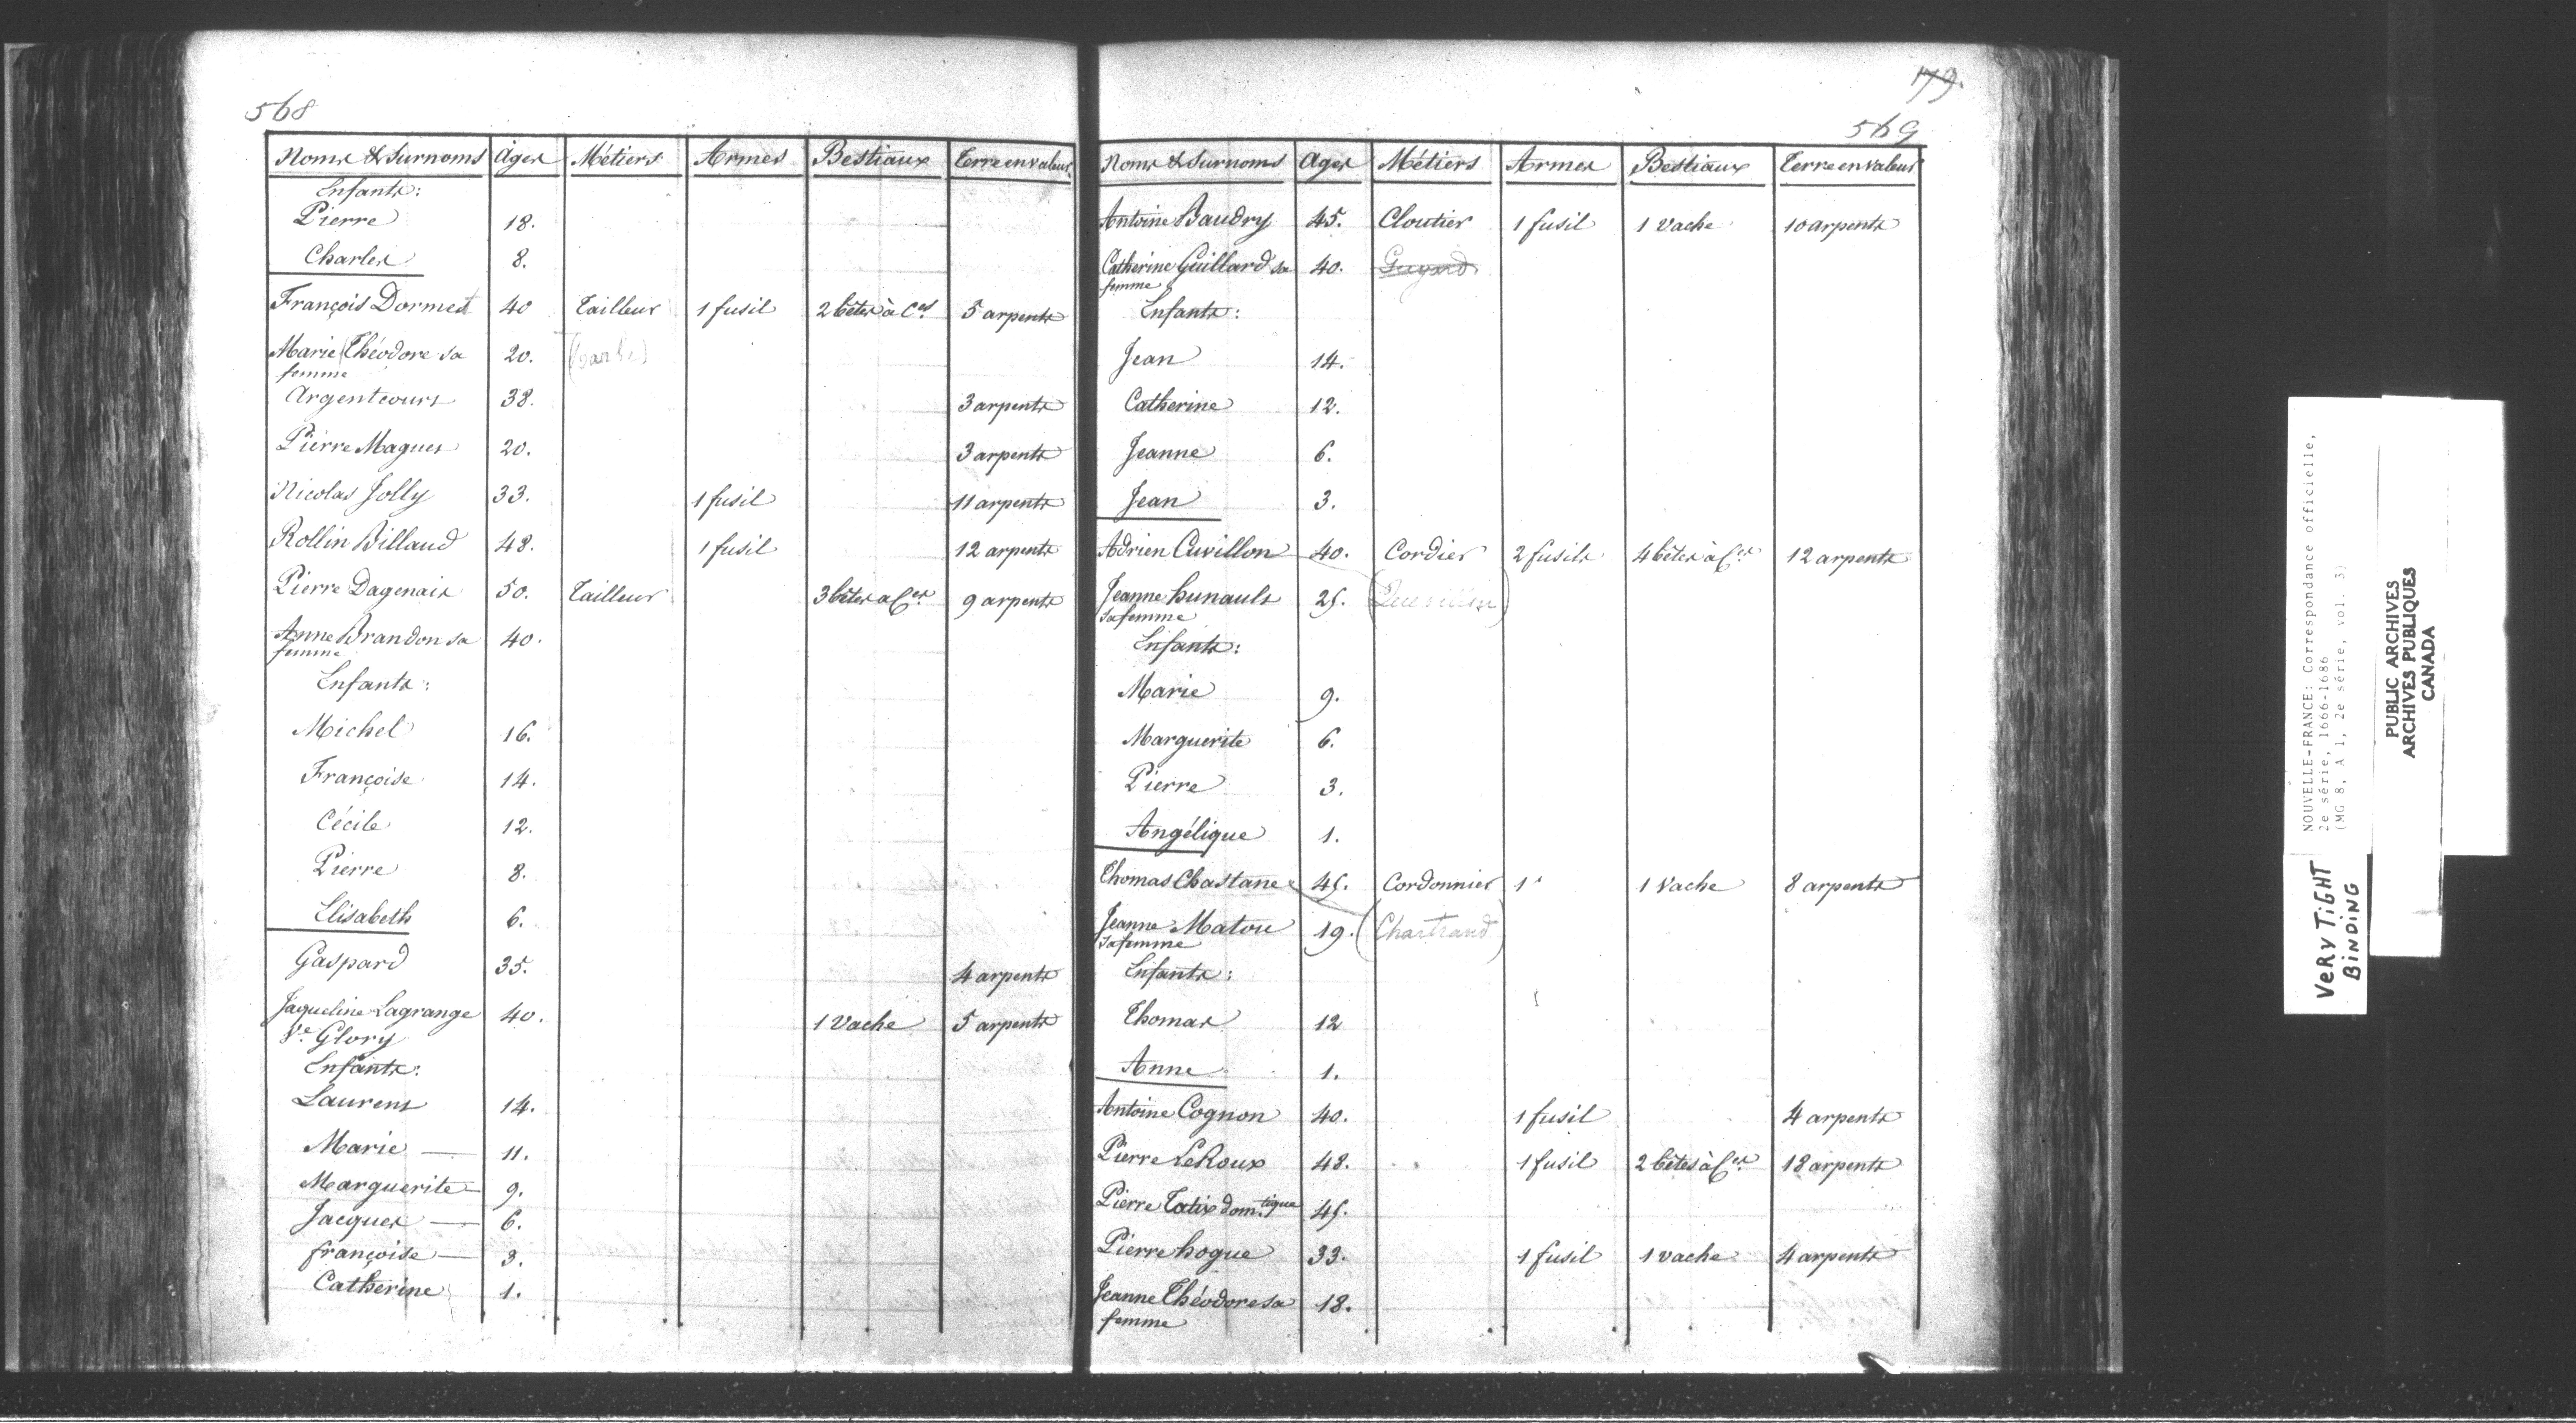 568
Noms & Surnoms Ages Métiers Armes Bestiaux Terre en valeur
Enfants:
Pierre 18.
Charles 8.
François Dormet 40 Tailleur 1 fusil 2 bêtes à Ces 5 arpents
Marie Théodore sa 20.
femme
Argentcourt 38. 3 arpents
Pierre Magues 20. 3 arpents
Nicolas Jolly 33. 1 fusil 11 arpents
Rollin Billaud 48. 1 fusil 12 arpents
Pierre Dagenais 50. Tailleur 3 bêtes a Ces 9 arpents
Anne Brandon sa 40.
femme
Enfants:
Michel 16.
Françoise 14.
Cécile 12.
Pierre 8.
Elisabeth 6.
Gaspard 35. 4 arpents
Jaqueline Lagrange 40. 1 Vache 5 arpents
Ve Glory
Enfants:
Laurens 14.
Marie — 11.
Marguerite — 9.
Jacques — 6.
françoise — 3.
Catherine 1.
179.
569
Noms & Surnoms Ages Métiers Armes Bestiaux Terre en valeur
Antoine Baudry 45. Cloutier 1 fusil 1 Vache 10 arpents
Catherine Guillard sa 40.
femme
Enfants:
Jean 14.
Catherine 12.
Jeanne 6.
Jean 3.
Adrien Cuvillon 40. Cordier 2 fusils 4 bêtes à Ces 12 arpents
Jeanne hunault 25. (Quevillon)
sa femme
Enfants:
Marie 9.
Marguerite 6.
Pierre 3.
Angélique 1.
Thomas Chastane 45. Cordonnier 1 1 Vache 8 arpents
Jeanne Matou 19. (Chartrand)
sa femme
Enfants:
Thomas 12
Anne 1.
Antoine Cognon 40. 1 fusil 4 arpents
Pierre LeRoux 48. 1 fusil 2 bêtes à Ces 18 arpents
Pierre Tatix dom.tique 45.
Pierre hogue 33. 1 fusil 1 vache 4 arpents
Jeanne Théodore sa 18.
femme
NOUVELLE-FRANCE: Correspondance officielle,
2e série, 1666-1686
(MG 8, A 1, 2e série, vol. 3)
VERY TIGHT
BINDING
PUBLIC ARCHIVES
ARCHIVES PUBLIQUES
CANADA